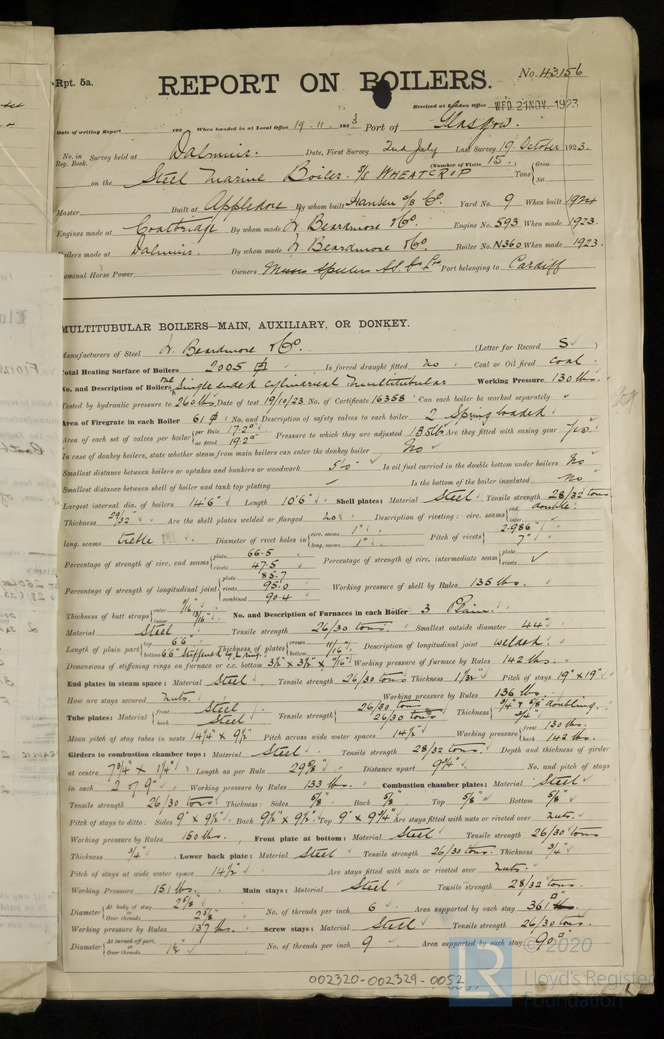 Rpt. 5a.
REPORT ON BOILERS.
No. 43156
Received at London Office WED. 21 NOV. 1923
Date of writing Report 192 When handed in at Local Office 19-11- 1923 Port of Glasgow.
No. in Reg. Book. Survey held at Dalmuir. Date, First Survey 2nd July Last Survey 19 October 1923.
(Number of Visits 15)
on the Steel Marine Boiler. S/S WHEATCROP Tons { Gross Net
Master Built at Appledore By whom built Hansen S/B Co. Yard No. 9 When built 1924
Engines made at Coatbridge By whom made W. Beardmore & Co. Engine No. 593 When made 1923.
Boilers made at Dalmuir. By whom made W. Beardmore & Co. Boiler No. N360 When made 1923.
Nominal Horse Power Owners Port belonging to Cardiff
MULTITUBULAR BOILERS—MAIN, AUXILIARY, OR DONKEY.
Manufacturers of Steel W. Beardmore & Co. (Letter for Record S)
Total Heating Surface of Boilers 2005 Is forced draught fitted no Coal or Oil fired coal
No. and Description of Boilers One Single ended cylindrical multitubular Working Pressure 130 lbs.
Tested by hydraulic pressure to 260 lbs. Date of test 19/10/23 No. of Certificate 16358 Can each boiler be worked separately
Area of Firegrate in each Boiler 61 No. and Description of safety valves to each boiler 2 Spring loaded
Area of each set of valves per boiler { per Rule 17.2 as fitted 19.2 Pressure to which they are adjusted 135 lbs Are they fitted with easing gear Yes
In case of donkey boilers, state whether steam from main boilers can enter the donkey boiler No
Smallest distance between boilers or uptakes and bunkers or woodwork 5'0 Is oil fuel carried in the double bottom under boilers No
Smallest distance between shell of boiler and tank top plating Is the bottom of the boiler insulated No
Largest internal dia. of boilers 14'6" Length 10'6" Shell plates: Material Steel Tensile strength 28/32 tons
Thickness 29/32 Are the shell plates welded or flanged no Description of riveting: circ. seams { end double inter.
long. seams treble Diameter of rivet holes in { circ. seams 1" long. seams 1" Pitch of rivets { 2.986 7"
Percentage of strength of circ. end seams { plate 66.5 rivets 47.5 Percentage of strength of circ. intermediate seam { plate rivets
Percentage of strength of longitudinal joint { plate 85.7 rivets 95.0 combined 90.4 Working pressure of shell by Rules 135 lbs.
Thickness of butt straps { outer 11/16 inner 13/16 No. and Description of Furnaces in each Boiler 3 Plain
Material Steel Tensile strength 26/30 tons. Smallest outside diameter 44"
Length of plain part { top 6'6" bottom 6'6" Thickness of plates { crown 11/16 bottom Description of longitudinal joint welded
Dimensions of stiffening rings on furnace or c.c. bottom 3½ x 3½ x 11/16 Working pressure of furnace by Rules 142 lbs.
End plates in steam space: Material Steel Tensile strength 26/30 tons Thickness 1 1/32 Pitch of stays 19" x 19"
How are stays secured nuts. Working pressure by Rules 136 lbs
Tube plates: Material { front Steel back Steel Tensile strength { 26/30 tons 26/30 tons Thickness { 3/4 & 5/8 doubling 3/4"
Mean pitch of stay tubes in nests 14¼ x 9½ Pitch across wide water spaces 14½" Working pressure { front 130 lbs. back 142 lbs.
Girders to combustion chamber tops: Material Steel Tensile strength 28/32 tons. Depth and thickness of girder
at centre 7¾" x 1¼" Length as per Rule 29⅝ Distance apart 9¾" No. and pitch of stays
in each 2 of 9" Working pressure by Rules 133 lbs. Combustion chamber plates: Material Steel
Tensile strength 26/30 tons Thickness: Sides 5/8" Back 5/8 Top 5/8" Bottom 5/8"
Pitch of stays to ditto: Sides 9" x 9½ Back 9½" x 9½" Top 9" x 9¾" Are stays fitted with nuts or riveted over nuts.
Working pressure by Rules 150 lbs. Front plate at bottom: Material Steel Tensile strength 26/30 tons
Thickness 3/4" Lower back plate: Material Steel Tensile strength 26/30 tons. Thickness 3/4"
Pitch of stays at wide water space 14½" Are stays fitted with nuts or riveted over nuts.
Working Pressure 151 lbs. Main stays: Material Steel Tensile strength 28/32 tons.
Diameter { At body of stay 2⅝" or Over threads 2⅝" No. of threads per inch 6 Area supported by each stay 361
Working pressure by Rules 137 lbs. Screw stays: Material Steel Tensile strength 26/30 tons
Diameter { At turned off part, or Over threads 1½" No. of threads per inch 9 Area supported by each stay 90
002320-002329-0052
LR
© 2020
Lloyd's Register
Foundation